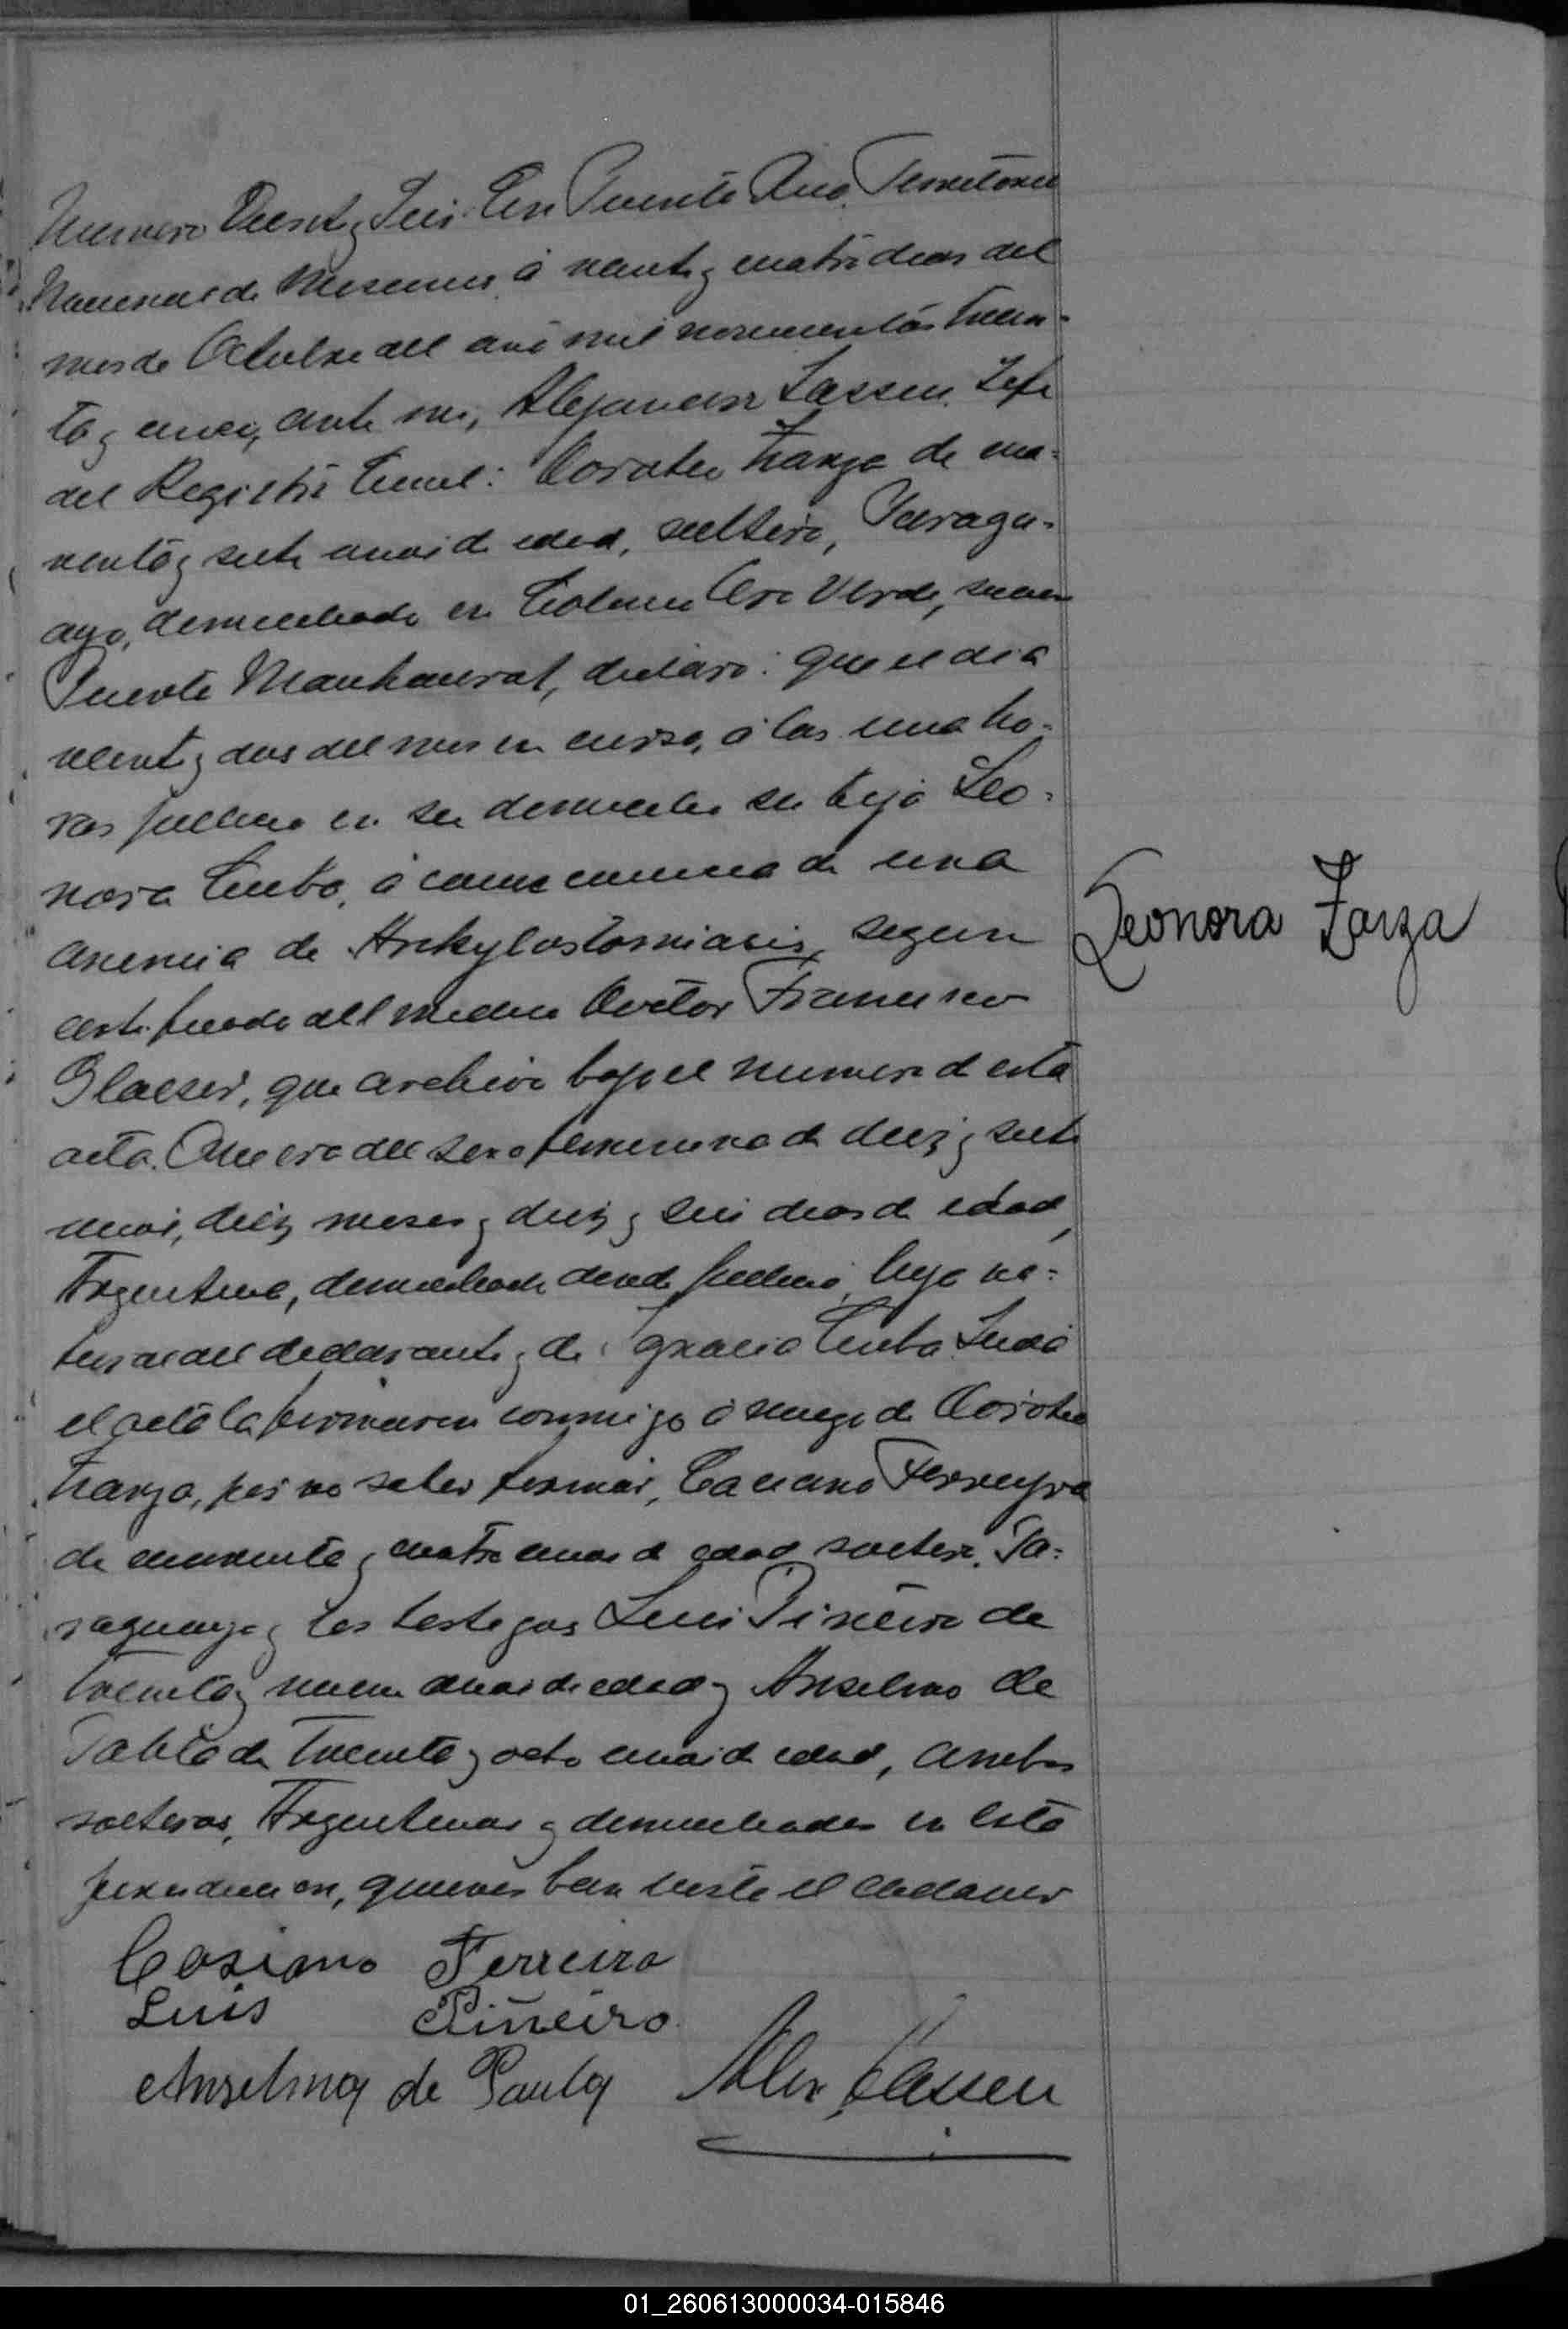 Numero Veinte y Seis. En Puente Rico, Territorio
Nacional de Misiones, á veinte y cuatro dias del
mes de Octubre del año mil novecientos trein-
ta y cinco, ante mi, Alejandro Lassen, Jefe
del Registro Civil: Doroteo Zarza de cua-
renta y siete anos de edad, soltero, Paragu-
ayo, domiciliado en Colonia Oro Verde,
Puente Manhaurat, declaró: Que el dia
veinte y dos del mes en curso, á las una ho-
ras fallecio en su domicilio su hija Leo-
nora Cuba, á consecuencia de una
anemia de Ankylostomiasis, segun
certificado del medico Doctor Francisco
Glaeser, que archivo bajo el numero de esta
acta. Que era del sexo femenino de diez y siete
anos, diez meses y diez y seis dias de edad,
Argentina, domiciliada donde fallecio, hija na-
tural del declarante y de Ignacia Cuba. Leida
el acta la firmaron conmigo á ruego de Doroteo
Zarza, por no saber firmar, Casiano Ferreyra
de cincuenta y cuatro anos de edad soltero, Pa-
raguayo y los testigos Luis Piñeiro de
treinta y nueve anos de edad y Anselmo de
Pabla de treinta y ocho anos de edad, ambos
solteros, Argentinos y domiciliados en esta
jurisdiccion, quienes han visto el cadaver
Leonora Zarza
Casiano Ferreira
Luis Piñeiro
Anselmo de Paula Alex Lassen
01_260613000034-015846